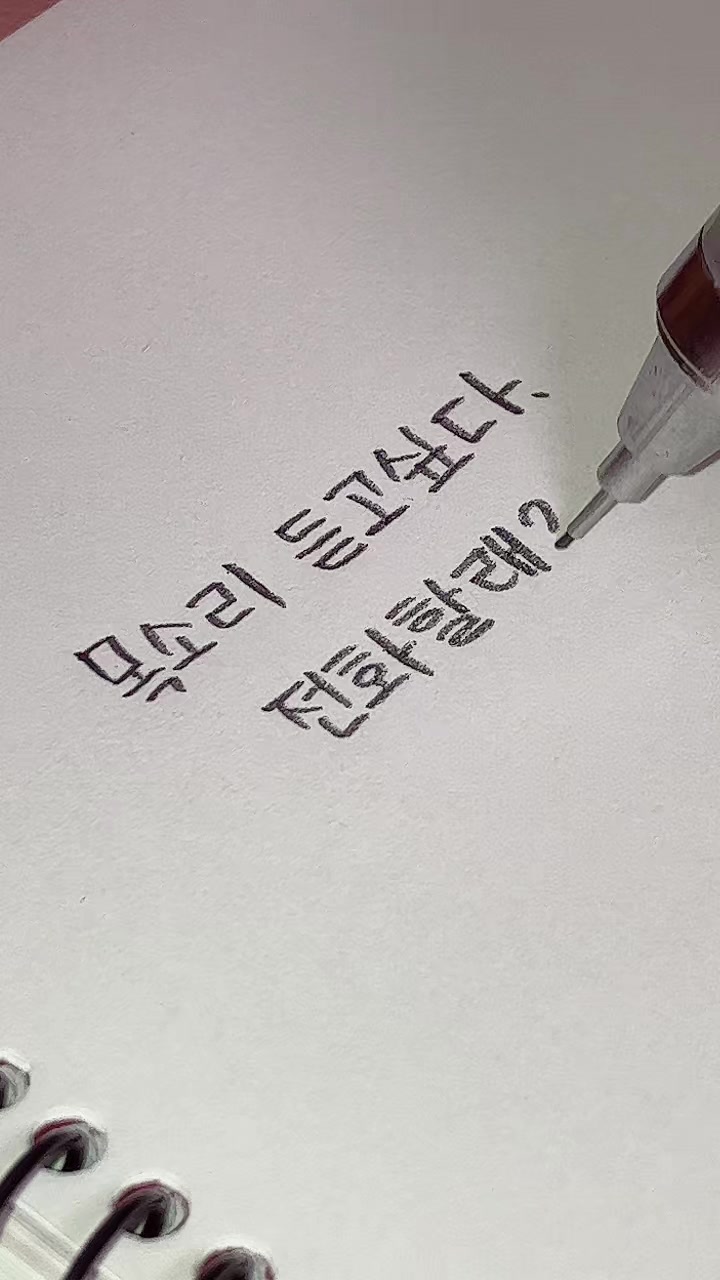 목소리 듣고싶다.
전화할래?